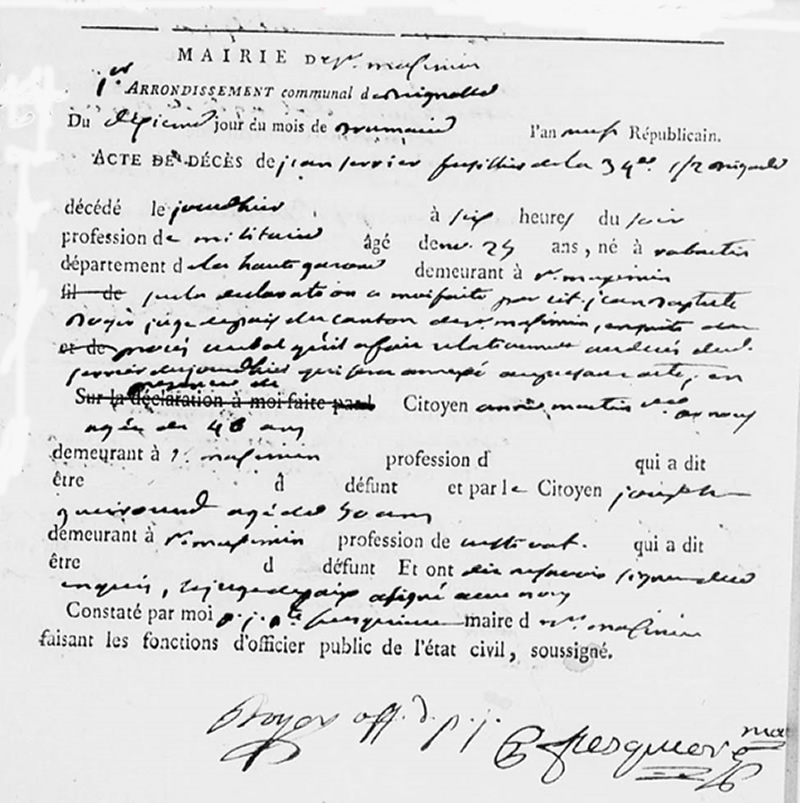 MAIRIE DE St. maximin
1er ARRONDISSEMENT communal de Brignolles
Du dixieme jour du mois de Brumaire l'an neuf Républicain.
ACTE DE DÉCÈS de jean janvier fusillier de la 34e 1/2 Brigade
décédé le jourdhier à six heures du soir
profession de militaire âgé de 25 ans, né à rabastin
département de la haute garonne demeurant à St. maximin
fil de sur la declaration a moi faite par cit. jean Baptiste
Boyer juge de paix du canton de St. maximin, ensuite du
et de procés verbal qu'il a fait relativement au decés dud.
janvier dujourdhier qui sera annexé au present acte, en
presence de
Sur la déclaration à moi faite par l Citoyen martin
agée de 48 ans
demeurant à St. maximin profession d qui a dit
être d défunt et par le Citoyen joseph
agé de 50 ans
demeurant à St. maximin profession de cultivat. qui a dit
être d défunt Et ont dit ne savoir signer de ce
enquis, le juge de paix a signé avec nous
Constaté par moi p. j. fesquiere maire de St. maximin
faisant les fonctions d'officier public de l'état civil, soussigné.
Boyer off. d. p. j. fesquiere